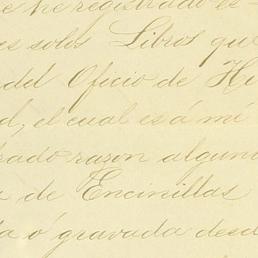 he registrado es
es solos Libros que
del Oficio de Hi
d, el cual es á mi
rado razon alguna
a de Encinillas
da ó gravada desd